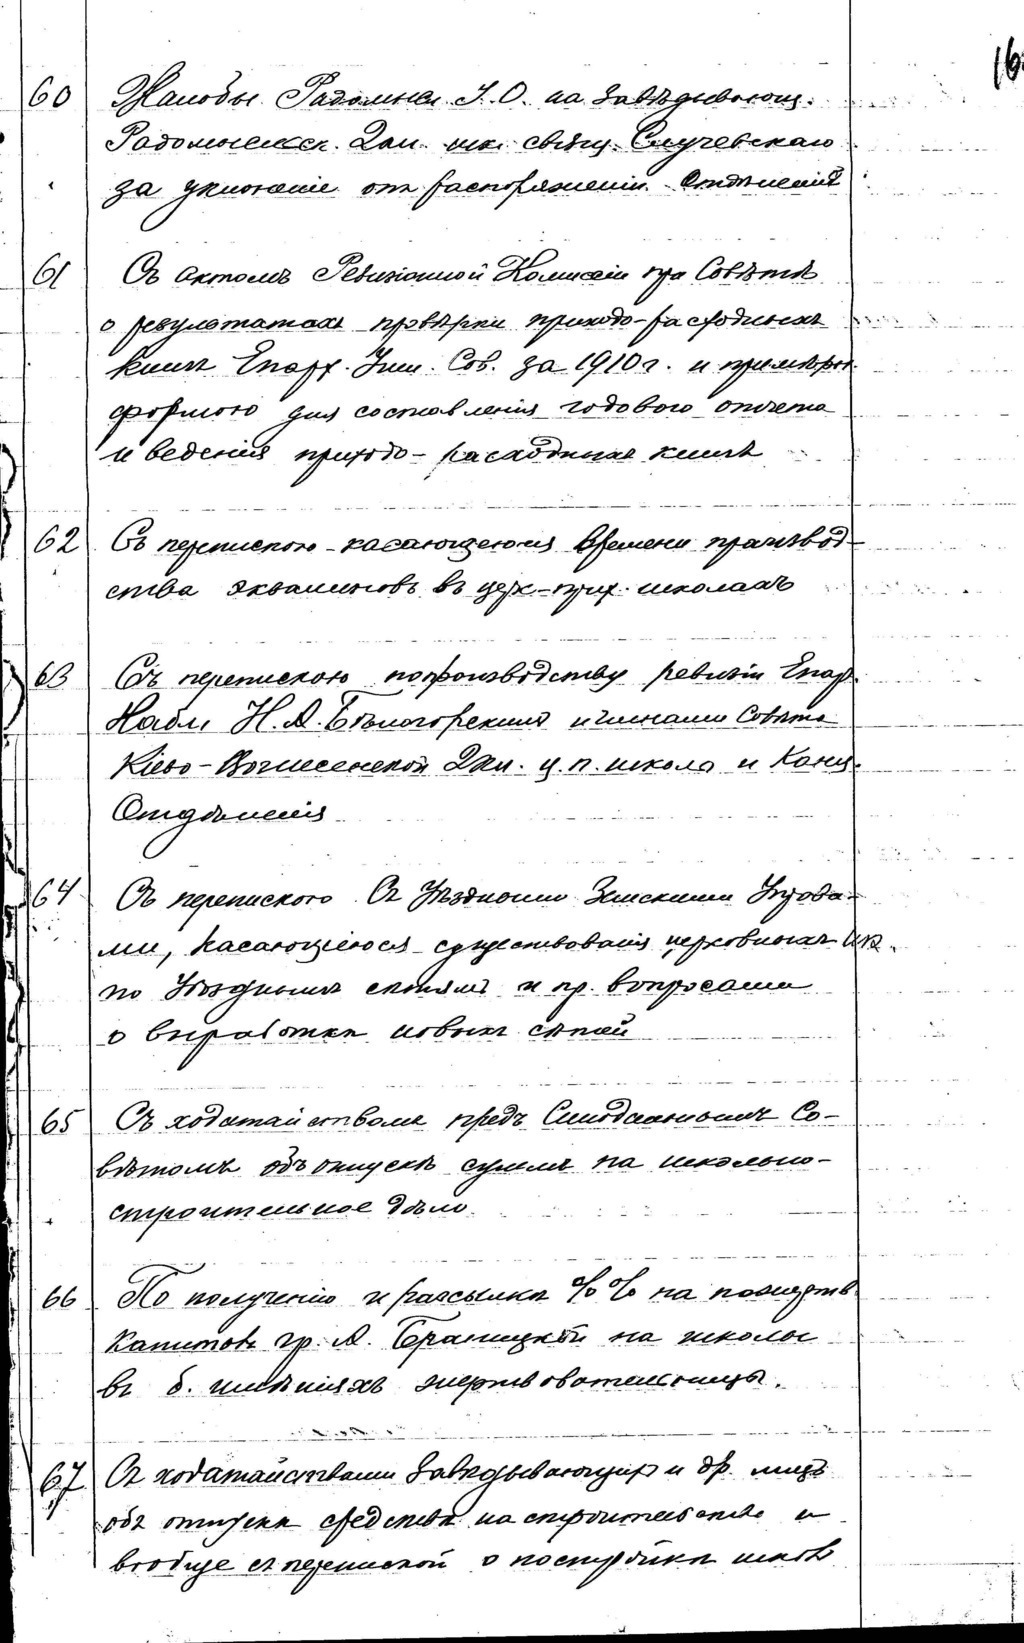 16
60 Жалобы Радомысл. У. О. на Завѣдывающ.
Радомысльск. 2кл. шк. свящ. Случевскаго
за уклоненіе отъ распоряженій Отдѣленія
61 Съ актомъ Ревизіонной Комиссіи при Совѣтѣ
о результатахъ провѣрки приходо-расходныхъ
книгъ Епарх. Учил. Сов. за 1910 г. и примѣрн.
формою для составленія годового отчета
и веденія приходо-расходныхъ книгъ
62 Съ перепискою касающеюся времени производ-
ства экзаменовъ въ церк-прих. школахъ
63 Съ перепискою по производству ревизіи Епар.
Набл. Н. А. Бѣлогорскимъ и членами Совѣта
Кіево-Вознесенской 2кл. ц. п. школа и Канц.
Отдѣленія
64 Съ перепискою съ Уѣздными Земскими Управа-
ми, касающеюся существованія церковныхъ шк.
по Уѣзднымъ сѣтямъ и пр. вопросами
о выработкѣ новыхъ сѣтей
65 Съ ходатайствомъ предъ Синодальнымъ Со-
вѣтомъ объ отпускѣ суммъ на школьно-
строительное дѣло
66 По полученію и разсылкѣ %% на пожертв.
Капиталъ гр. А. Браницкой на школы
въ б. имѣніяхъ жертвовательницы.
67 Съ ходатайствами Завѣдывающихъ и др. лицъ
объ отпускѣ средствъ на строительство и
вообще съ перепиской о постройкѣ школъ